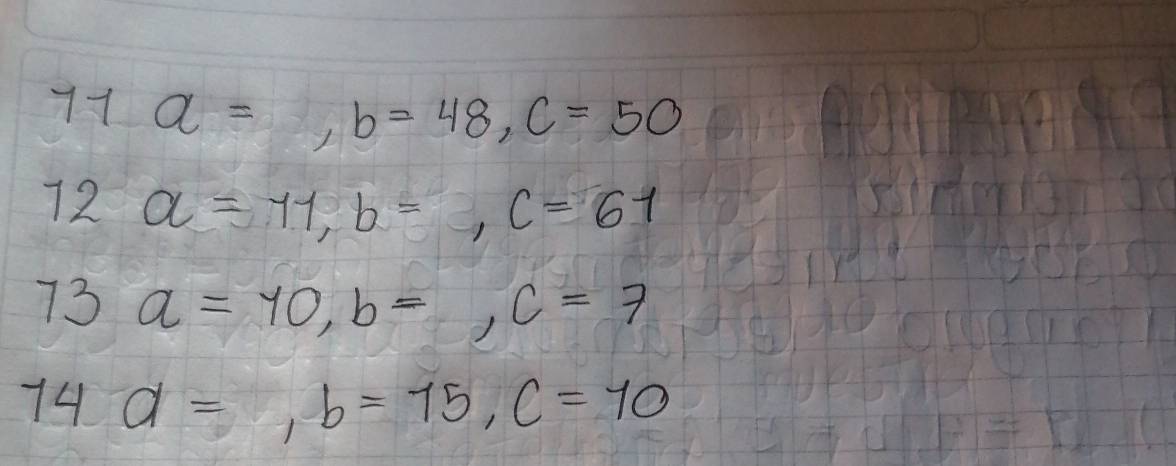 11 a = , b = 48, c = 50
12 a = 11, b = , c = 61
13 a = 10, b = , c = 7
14 a = , b = 15, c = 10